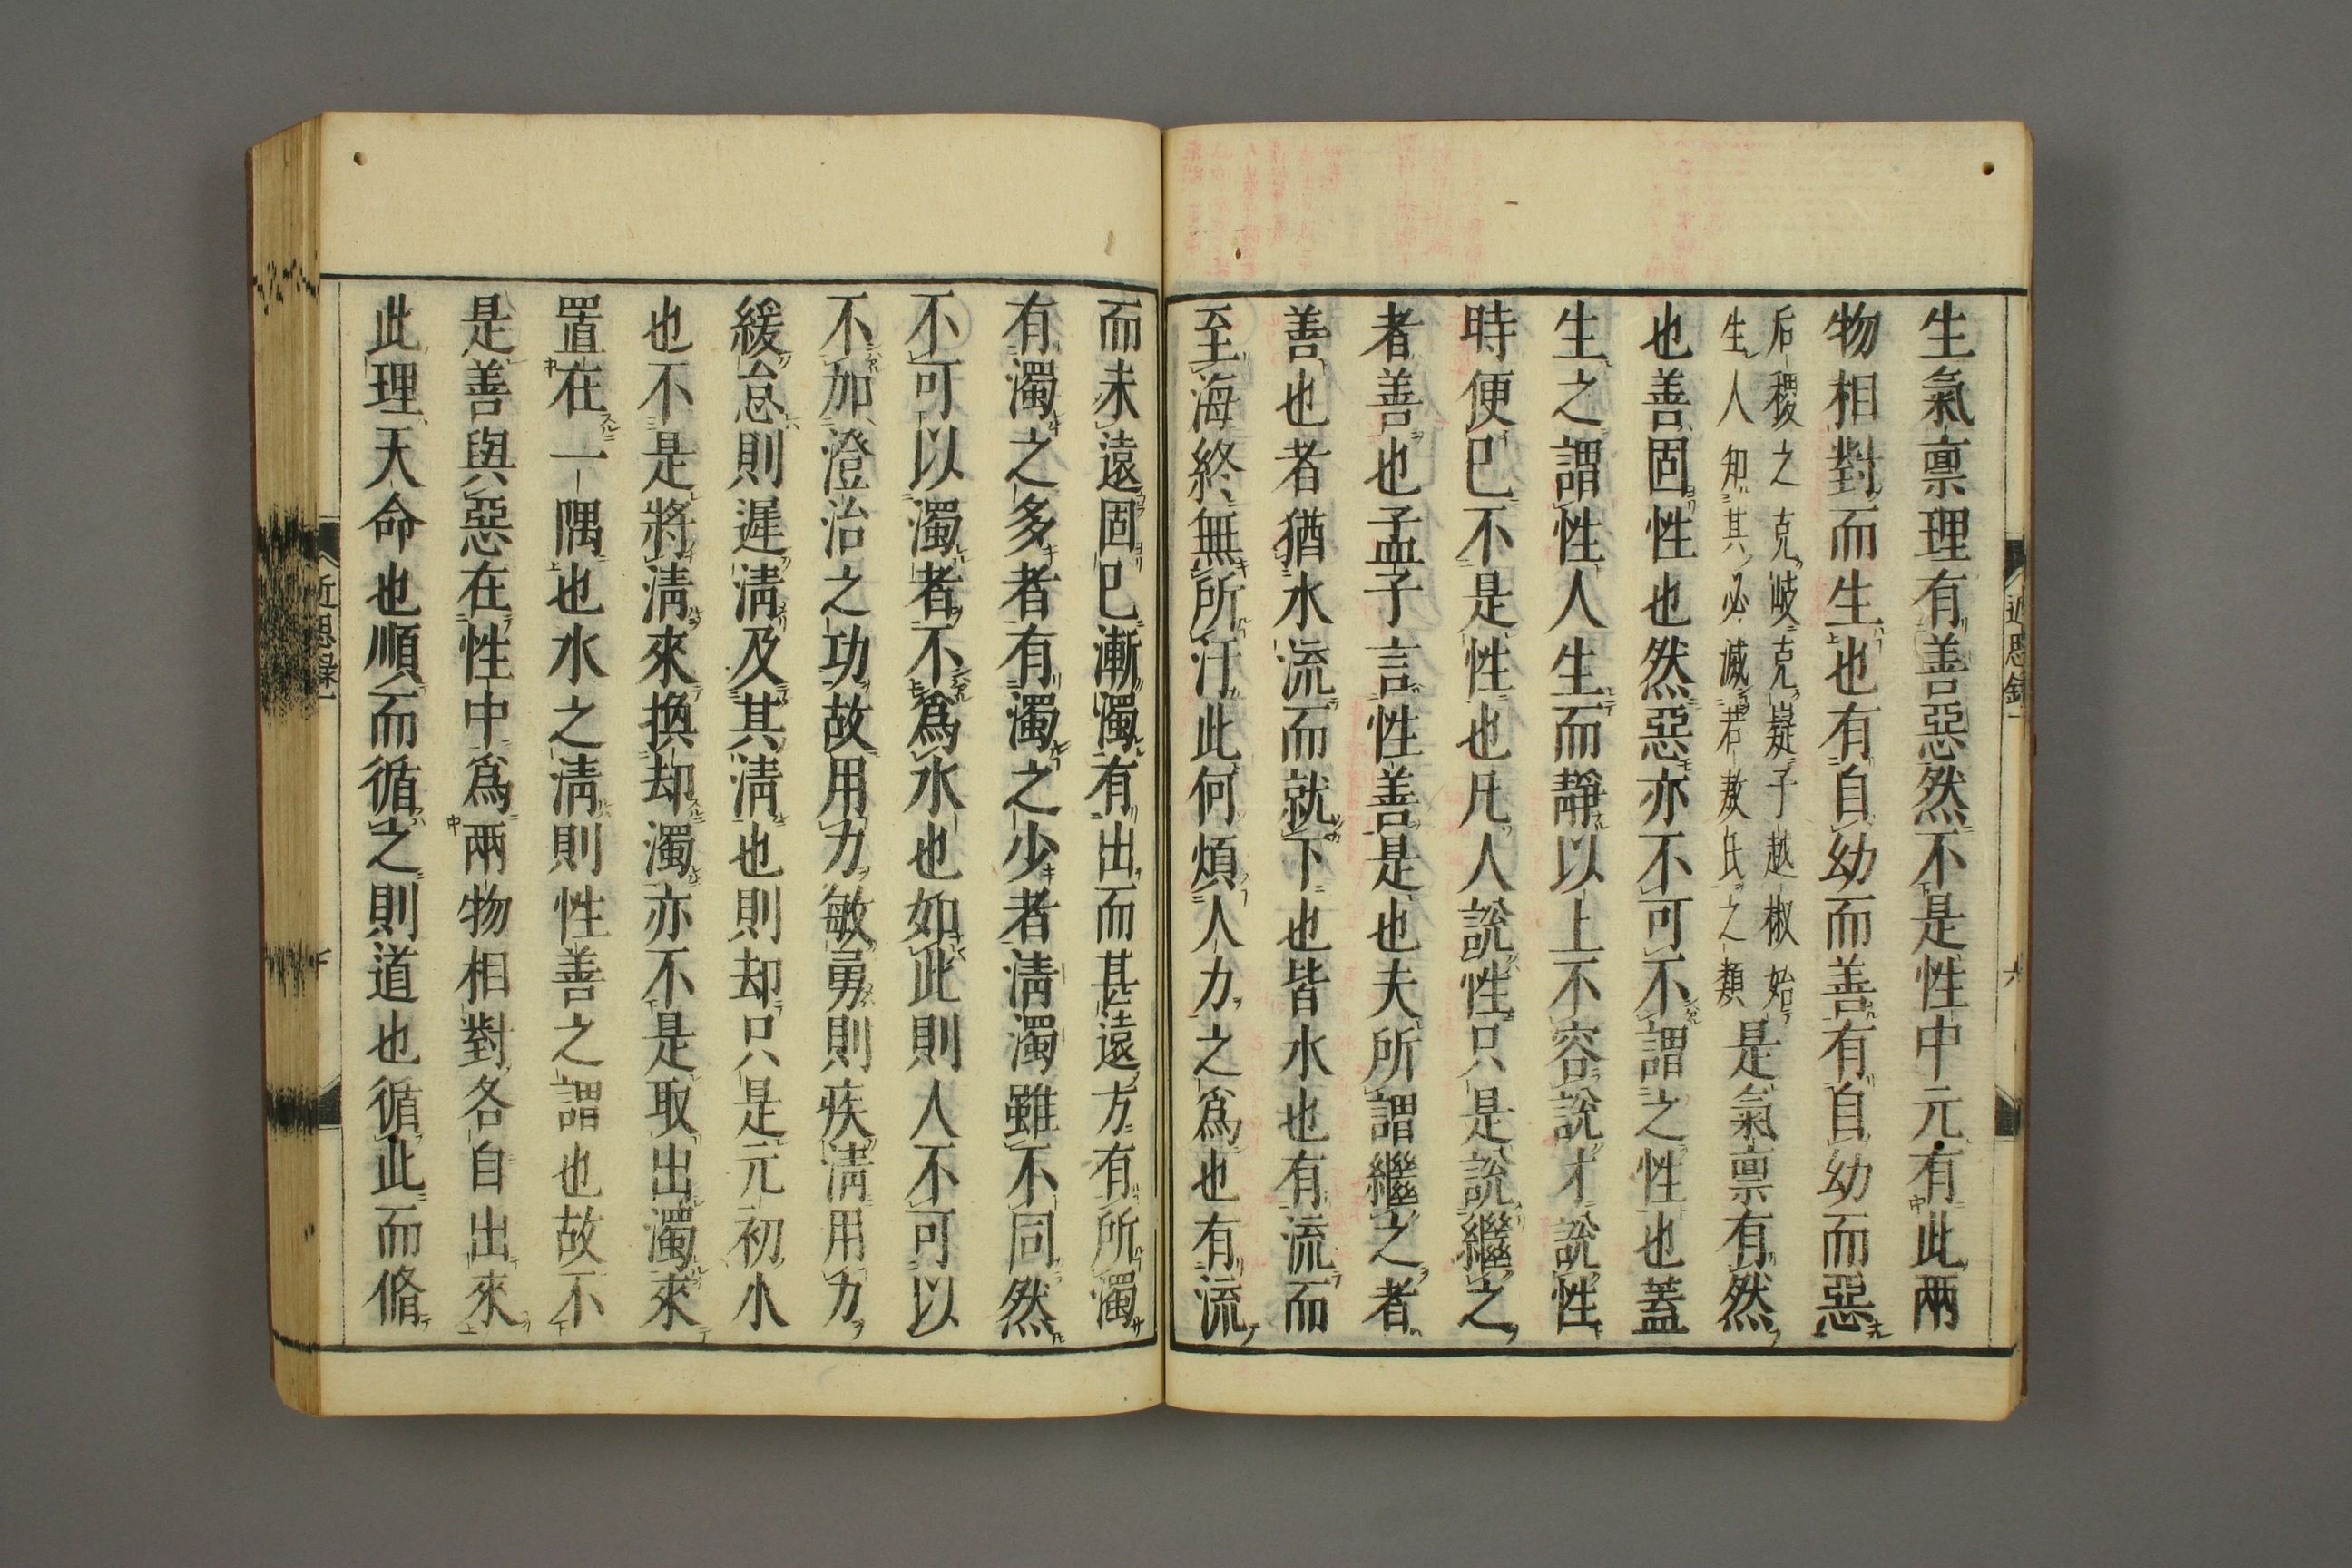 生氣禀理有善惡然不是性中元有此兩
物相對而生也有自幼而善有自幼而惡
后稷之克岐克嶷子越椒始
生人知其必滅若敖氏之類
是氣禀有然
也善固性也然惡亦不可不謂之性也蓋
生之謂性人生而靜以上不容說才說性
時便已不是性也凡人說性只是說繼之
者善也孟子言性善是也夫所謂繼之者
善也者猶水流而就下也皆水也有流而
至海終無所汙此何煩人力之爲也有流
近思錄一
而未遠固已漸濁有出而甚遠方有所濁
有濁之多者有濁之少者淸濁雖不同然
不可以濁者不爲水也如此則人不可以
不加澄治之功故用力敏勇則疾淸用力
緩怠則遲淸及其淸也則却只是元初水
也不是將淸來換却濁亦不是取出濁來
置在一隅也水之淸則性善之謂也故不
是善與惡在性中爲兩物相對各自出來
此理天命也順而循之則道也循此而脩
近思錄一